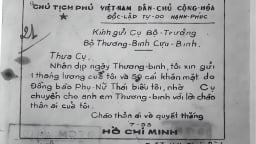 CHỦ TỊCH PHỦ
VIỆT-NAM DÂN-CHỦ CỘNG-HÒA
ĐỘC-LẬP TỰ-DO HẠNH-PHÚC
Kính gửi Cụ Bộ-Trưởng
Bộ Thương-Binh Cựu-Binh.
Thưa Cụ,
Nhân dịp ngày Thương-binh, tôi xin gửi
1 tháng lương của tôi và 50 cái khăn mặt do
Đồng bào Phụ-Nữ Thái biếu tôi, nhờ Cụ
chuyển cho anh em Thương-binh với lời chào
thân ái của tôi.
Chào thân ái và quyết thắng
HỒ CHÍ MINH